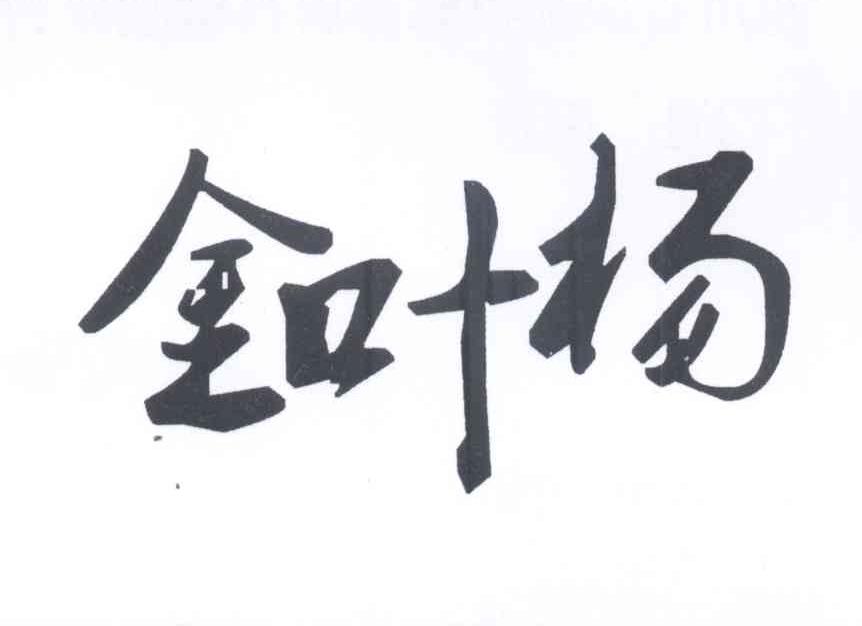 金叶杨